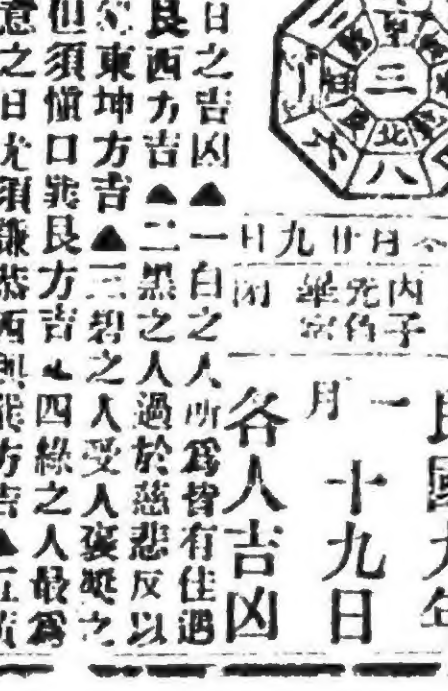 三
北
八
民國九年
一月
十九日
月廿九日
丙子
各人吉凶
日之吉凶▲一白之人所爲皆有佳遇
艮西方吉▲二黑之人過於慈悲反以
東坤方吉▲三碧之人受人褒奬之
但須愼口 艮方吉▲四綠之人最爲
意之日尤須謙恭西 方吉▲五黃